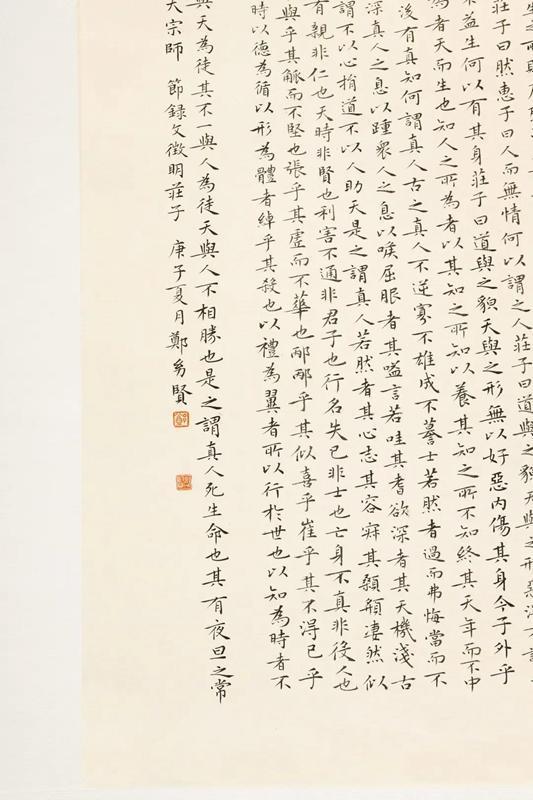 莊子曰然惠子曰人而無情何以謂之人莊子曰道與之貌天與之形惡
不益生何以有其身莊子曰道與之貌天與之形無以好惡內傷其身今子外乎
為者天而生也知人之所為者以其知之所知以養其知之所不知終其天年而不中
後有真知何謂真人古之真人不逆寡不雄成不謩士若然者過而弗悔當而不
深真人之息以踵衆人之息以喉屈服者其嗌言若哇其耆欲深者其天機淺古
謂不以心捐道不以人助天是之謂真人若然者其心志其容寂其顙頯凄然似
有親非仁也天時非賢也利害不通非君子也行名失己非士也亡身不真非役人也
與乎其觚而不堅也張乎其虛而不華也邴邴乎其似喜乎崔乎其不得已乎
時以德為循以形為體者綽乎其殺也以禮為翼者所以行於世也以知為時者不
與天為徒其不一與人為徒天與人不相勝也是之謂真人死生命也其有夜旦之常
大宗師 節錄文徵明莊子 庚子夏月鄭賢